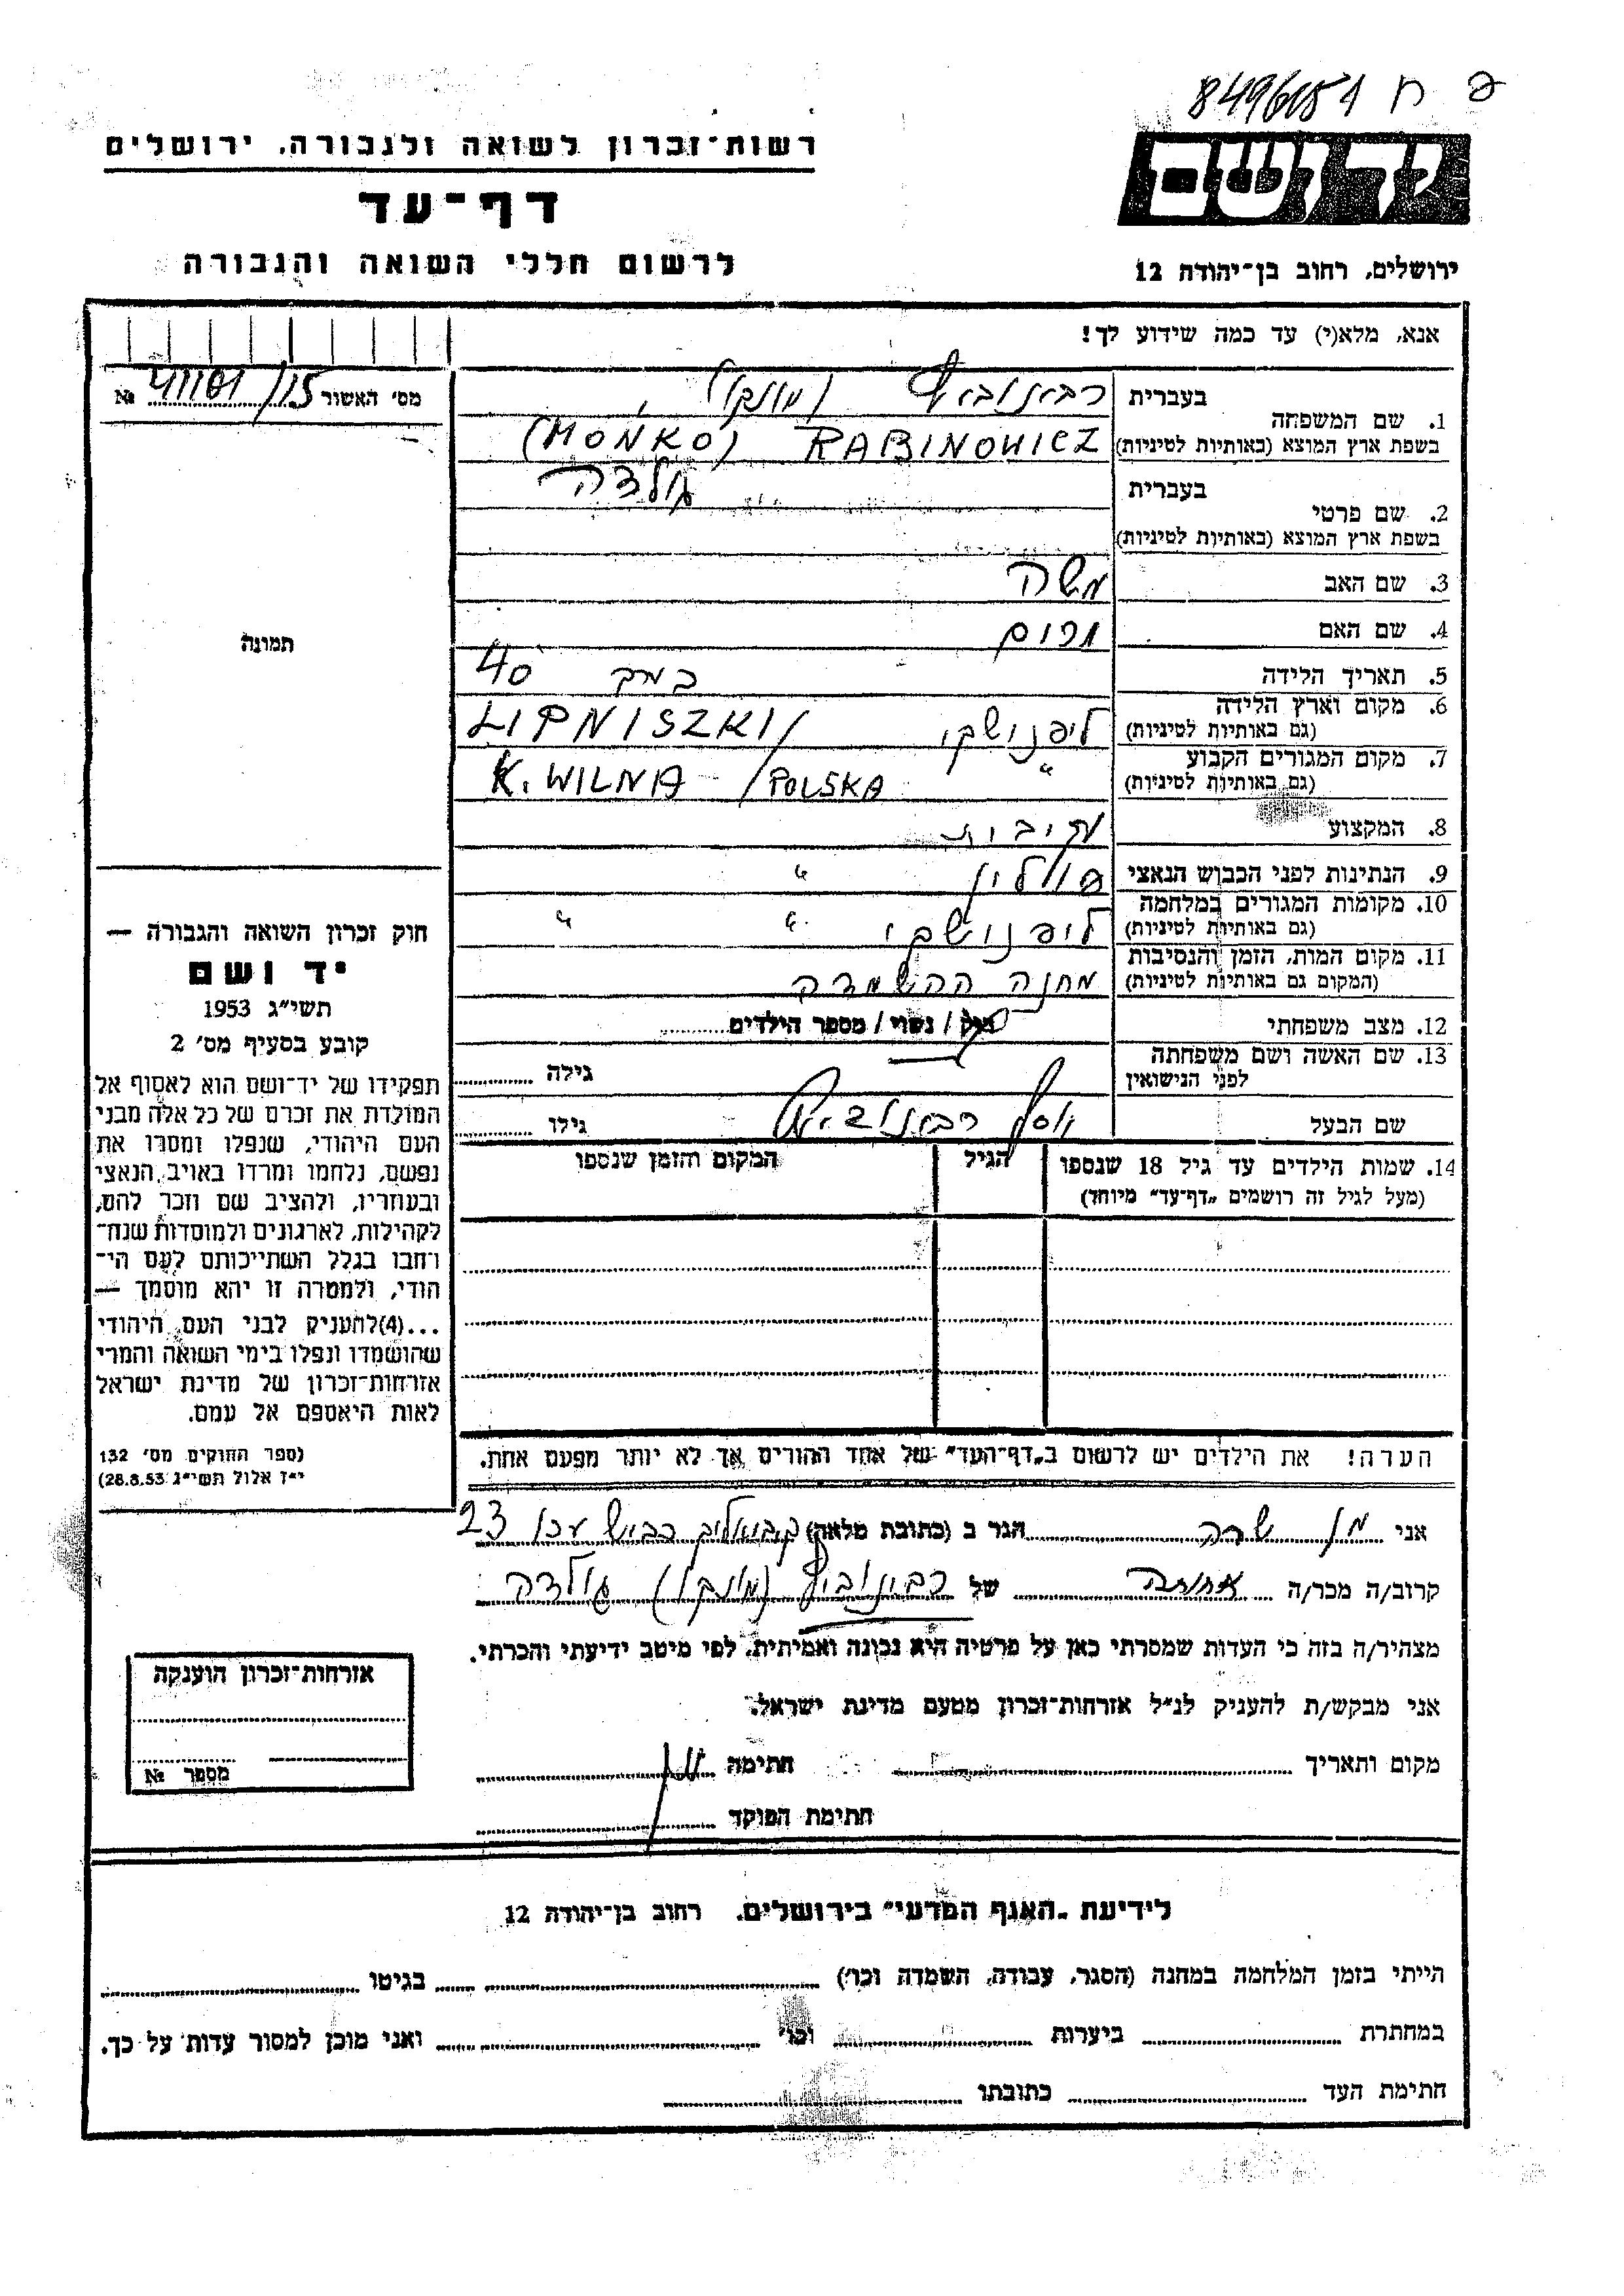 פ ח 8496151
רשות־זכרון לשואה ולגבורה, ירושלים
יד ושם
דף־עד
לרשום חללי השואה והגבורה
ירושלים, רחוב בן־יהודה 12
אנא, מלא(י) עד כמה שידוע לך!
מס׳ האשור 15/41101 №
1. שם המשפחה
בעברית רבינוביץ (מונקו)
בשפת ארץ המוצא (באותיות לטיניות) RABINOWICZ (MOŃKO)
2. שם פרטי
בעברית גולדה
בשפת ארץ המוצא (באותיות לטיניות)
3. שם האב משה
4. שם האם
5. תאריך הלידה 40
6. מקום וארץ הלידה ליפנישקי LIPNISZKI/
(גם באותיות לטיניות)
7. מקום המגורים הקבוע " K. WILNA /POLSKA
(גם באותיות לטיניות)
8. המקצוע
9. הנתינות לפני הכבוש הנאצי פולין "
10. מקומות המגורים במלחמה ליפנישקי " "
(גם באותיות לטיניות)
11. מקום המות, הזמן והנסיבות מחנה ההשמדה
(המקום גם באותיות לטיניות)
12. מצב משפחתי רוק / נשוי / מספר הילדים
13. שם האשה ושם משפחתה
לפני הנישואין גילה
שם הבעל יוסף רבינוביץ גילו
14. שמות הילדים עד גיל 18 שנספו
(מעל לגיל זה רושמים „דף־עד" מיוחד)
הגיל
המקום והזמן שנספו
הערה! את הילדים יש לרשום ב„דף־העד" של אחד ההורים אך לא יותר מפעם אחת.
תמונה
חוק זכרון השואה והגבורה —
יד ושם
תשי״ג 1953
קובע בסעיף מס׳ 2
תפקידו של יד־ושם הוא לאסוף אל
המולדת את זכרם של כל אלה מבני
העם היהודי, שנפלו ומסרו את
נפשם, נלחמו ומרדו באויב הנאצי
ובעוזריו, ולהציב שם וזכר להם,
לקהילות, לארגונים ולמוסדות שנח־
רחבו בגלל השתייכותם לעם הי־
הודי, ולמטרה זו יהא מוסמך —
...(4)להעניק לבני העם היהודי
שהושמדו ונפלו בימי השואה והמרי
אזרחות־זכרון של מדינת ישראל
לאות היאספם אל עמם.
(ספר החוקים מס׳ 132
י״ז אלול תשי״ג 28.8.53)
אני שרה הגר ב (כתובת מלאה) 23
קרוב/ה מכר/ה אחותה של רבינוביץ (מונקו) גולדה
מצהיר/ה בזה כי העדות שמסרתי כאן על פרטיה היא נכונה ואמיתית, לפי מיטב ידיעתי והכרתי.
אני מבקש/ת להעניק לנ״ל אזרחות־זכרון מטעם מדינת ישראל.
מקום ותאריך חתימה
חתימת הפוקד
אזרחות־זכרון הוענקה
מספר №
לידיעת „האגף המדעי" בירושלים, רחוב בן־יהודה 12
הייתי בזמן המלחמה במחנה (הסגר, עבודה, השמדה וכו׳) בגיטו
במחתרת ביערות וכו׳ ואני מוכן למסור עדות על כך.
חתימת העד כתובתו